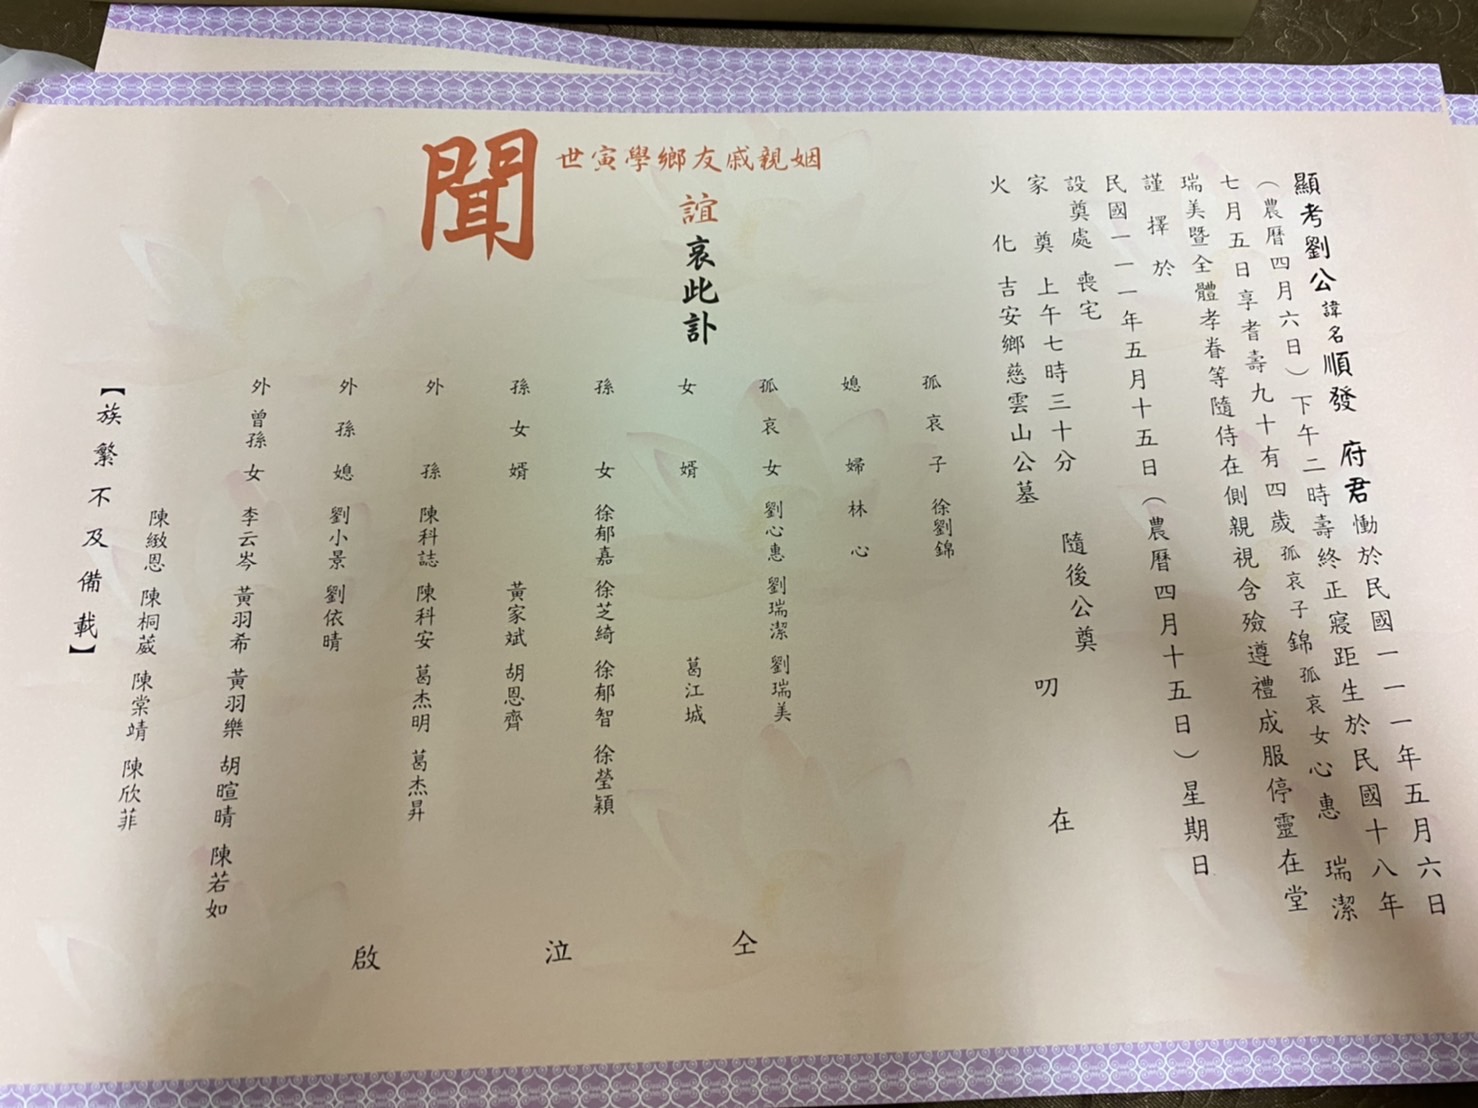 顯考劉公諱名順發 府君慟於民國一一一年五月六日
（農曆四月六日）下午二時壽終正寢距生於民國十八年
七月五日享耆壽九十有四歲孤哀子錦孤哀女心惠 瑞潔
瑞美暨全體孝眷等隨侍在側親視含殮遵禮成服停靈在堂
謹擇於
民國一一一年五月十五日（農曆四月十五日）星期日
設奠處 喪宅
家奠 上午七時三十分 隨後公奠
火化 吉安鄉慈雲山公墓
叨在
姻親戚友鄉學寅世
誼
哀此訃
聞
孤哀子 徐劉錦
媳婦 林心
孤哀女 劉心惠 劉瑞潔 劉瑞美
女婿 葛江城
孫女 徐郁嘉 徐芝綺 徐郁智 徐瑩穎
孫女婿 黃家斌 胡恩齊
外孫 陳科誌 陳科安 葛杰明 葛杰昇
外孫媳 劉小景 劉依晴
外曾孫女 李云岑 黃羽希 黃羽樂 胡暄晴 陳若如
陳緻恩 陳桐葳 陳棠靖 陳欣菲
仝泣啟
【族繁不及備載】